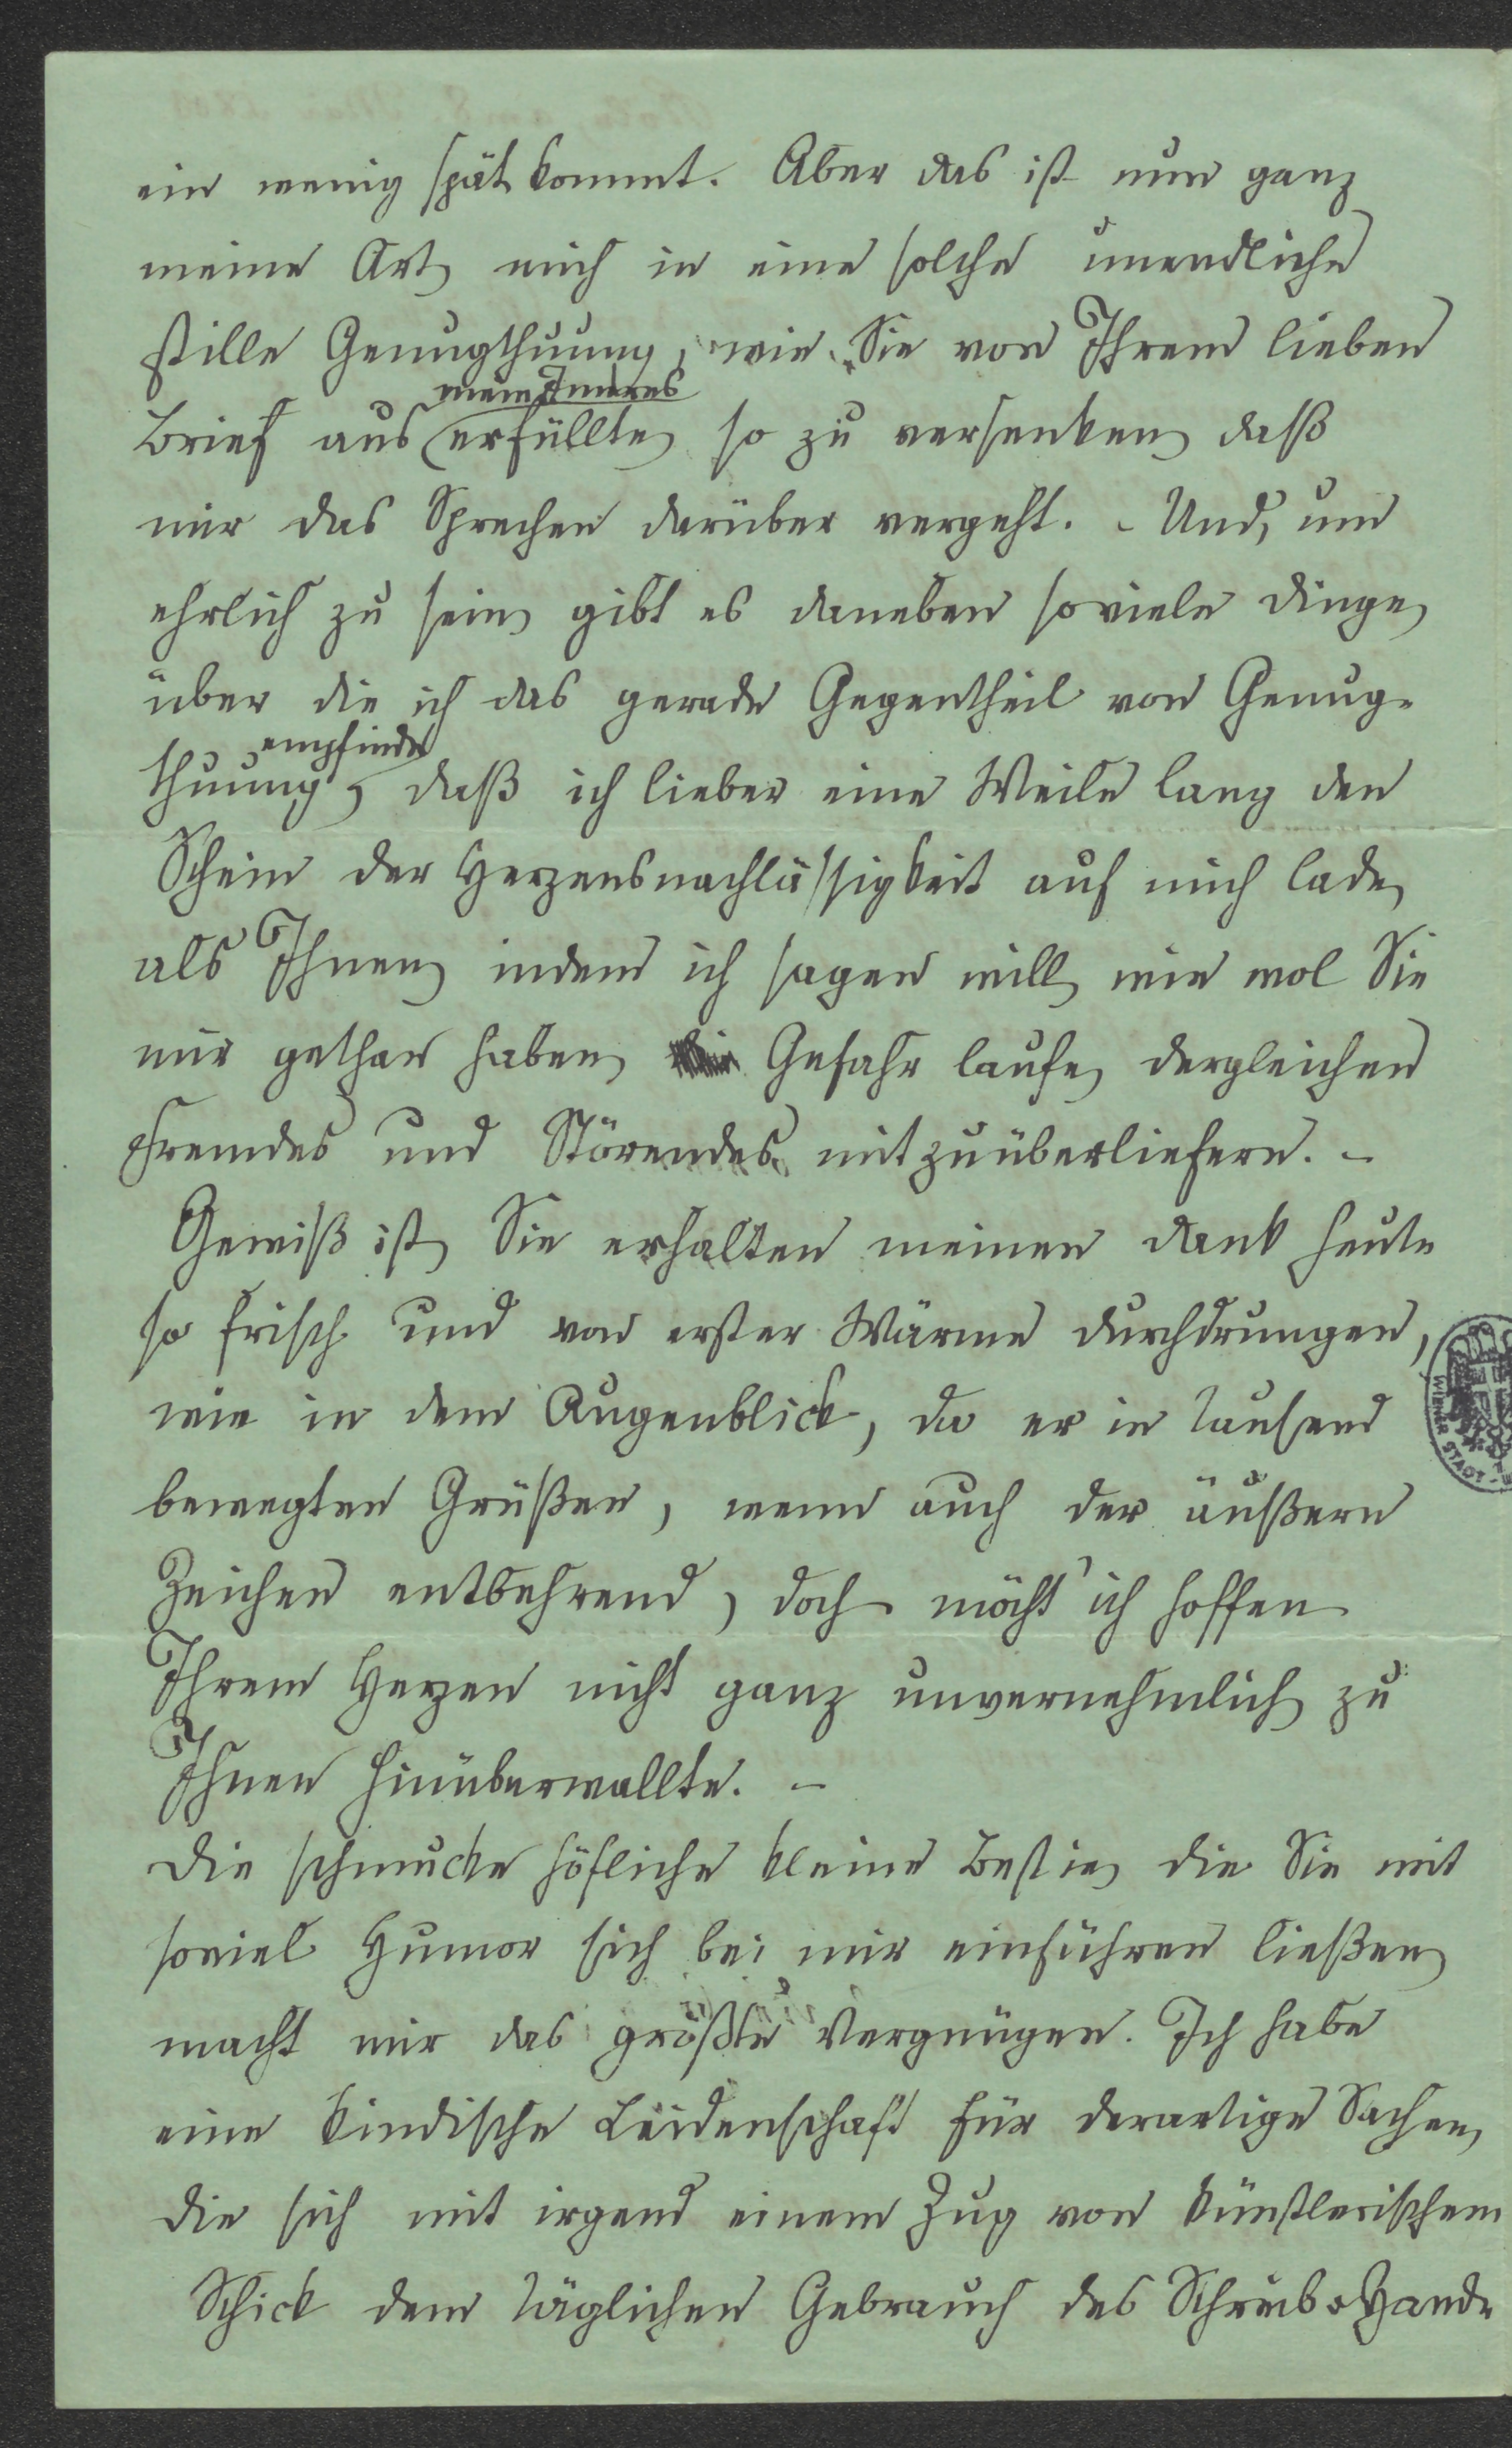 ein wenig spät kommt. Aber das ist nun ganz
meine Art, mich in eine solche unendliche
stille Genugthuung, wie Sie von Ihrem lieben
mein Inneres
Brief aus erfüllte, so zu versenken, daß
mir das Sprechen darüber vergeht. – Und, um
ehrlich zu sein, gibt es daneben soviele Dinge,
über die ich das gerade Gegentheil von Genug-
empfinde
thuung, daß ich lieber eine Weile lang den
Schein der Herzensnachlässigkeit auf mich lade,
als Ihnen, indem ich sagen will, wie wol Sie
mir gethan haben, Gefahr laufe, dergleichen
Fremdes und Störendes mitzuüberliefern. –
Gewiß ist, Sie erhalten meinen Dank heute
so frisch und von erster Wärme durchdrungen,
wie in dem Augenblick, da er in tausend
bewegten Grüßen, wenn auch der äußern
Zeichen entbehrend, doch möcht' ich hoffen
Ihrem Herzen nicht ganz unvernehmlich zu
Ihnen hinüberwallte. –
Die schmucke höfliche kleine Bestie, die Sie mit
soviel Humor sich bei mir einführen ließen,
macht mir das größte Vergnügen. Ich habe
eine kindische Leidenschaft für derartige Sachen,
die sich mit irgend einem Zug von künstlerischem
Schick dem täglichen Gebrauch des Schreib- Hand-
WIENER STADT-